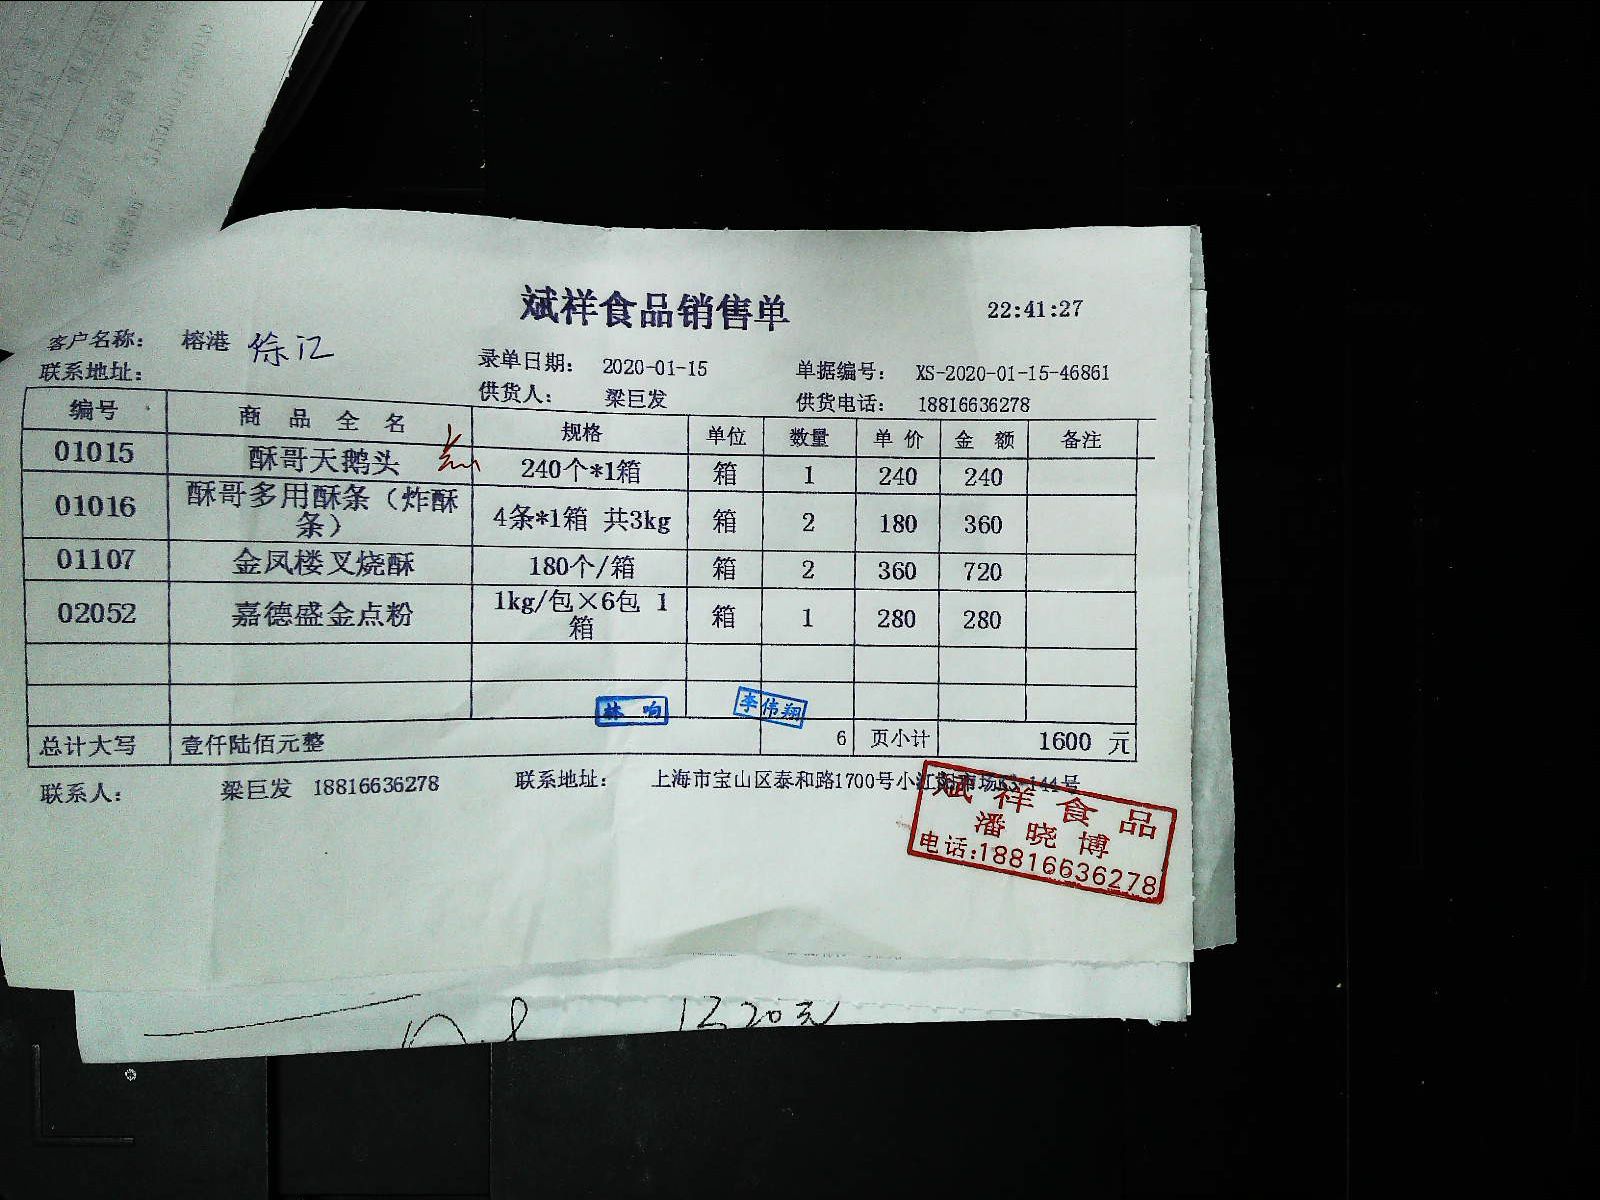 斌祥食品销售单
22:41:27
客户名称： 榕港 徐汇
录单日期： 2020-01-15 单据编号： XS-2020-01-15-46861
联系地址：
供货人： 梁巨发 供货电话： 18816636278
编号 商品全名 规格 单位 数量 单价 金额 备注
01015 酥哥天鹅头 240个*1箱 箱 1 240 240
01016 酥哥多用酥条（炸酥条） 4条*1箱 共3kg 箱 2 180 360
01107 金凤楼叉烧酥 180个/箱 箱 2 360 720
02052 嘉德盛金点粉 1kg/包×6包 1箱 箱 1 280 280
林响 李伟翔
总计大写 壹仟陆佰元整 6 页小计 1600 元
联系人： 梁巨发 18816636278 联系地址： 上海市宝山区泰和路1700号小江阳市场K3-144号
斌祥食品
潘晓博
电话:18816636278